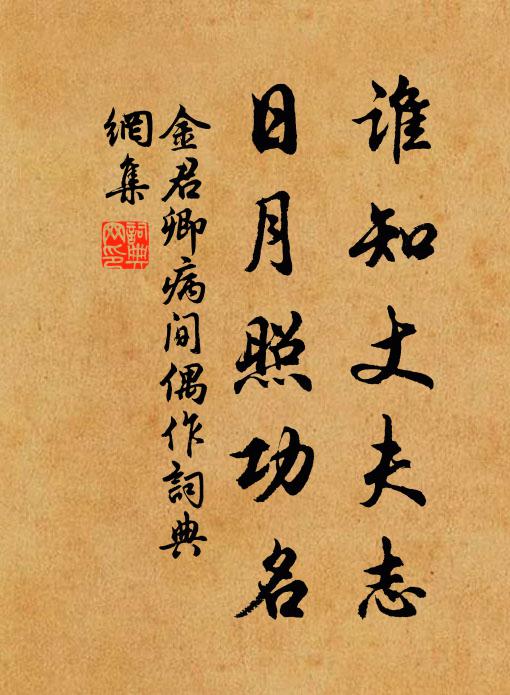 谁知丈夫志
日月照功名
金君卿病间偶作詞典
網集
詞典
网印